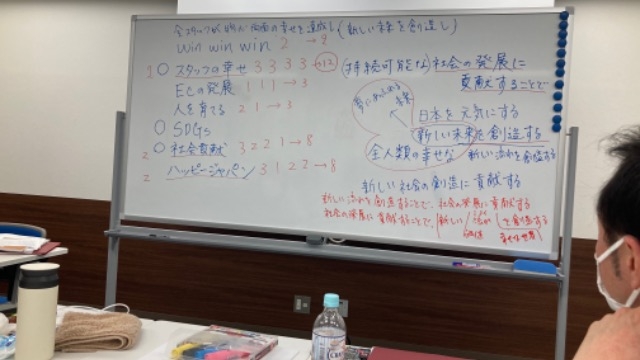 全スタッフが物心両面の幸せを追求し(新しい未来を創造し)
win win win 2 → 2
1 ○ スタッフの幸せ 3 3 3 3 → 12
ECの発展 1 1 1 → 3
人を育てる 2 1 → 3
○ SDGs
2 ○ 社会貢献 3 2 2 1 → 8
2 ハッピージャパン 3 1 2 2 → 8
(持続可能な)社会の発展に
貢献することで
夢にあふれる
未来
日本を元気にする
新しい未来を創造する
全人類の幸せな 新しい流れを創造する
新しい社会の創造に貢献する
新しい流れを創造することで、社会の発展に貢献する
社会の発展に貢献することで、新しい 流れ を創造する
価値 幸せな世界